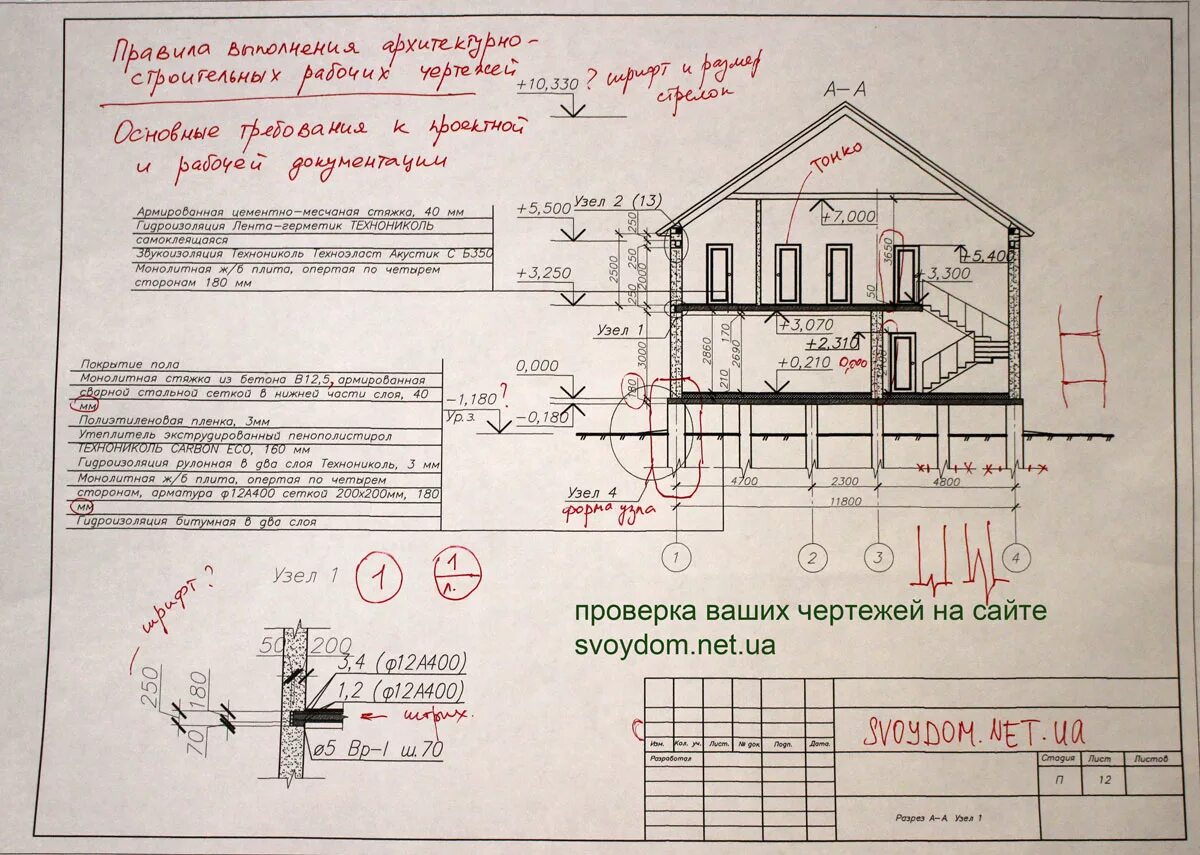 Правила выполнения архитектурно-
строительных рабочих чертежей
Основные требования к проектной
и рабочей документации
+10,330
? шрифт и размер
стрелок
А-А
тонко
Армированная цементно-месчаная стяжка, 40 мм
Гидроизоляция Лента-герметик ТЕХНОНИКОЛЬ
самоклеящаяся
Звукоизоляция Технониколь Техноэласт Акустик С Б350
Монолитная ж/б плита, опертая по четырем
сторонам 180 мм
+5,500
Узел 2 (13)
+7,000
+5,400
+3,250
+3,300
250
250
2500
2000
250
3650
50
Узел 1
+3,070
+2,310
+0,210
0,000
3000
2860
170
2690
210
180
0,000
-1,180
?
Ур.з.
-0,180
Покрытие пола
Монолитная стяжка из бетона В12,5, армированная
сварной стальной сеткой в нижней части слоя, 40
мм
Полиэтиленовая пленка, 3мм
Утеплитель экструдированный пенополистирол
ТЕХНОНИКОЛЬ CARBON ECO, 160 мм
Гидроизоляция рулонная в два слоя Технониколь, 3 мм
Монолитная ж/б плита, опертая по четырем
сторонам, арматура ф12А400 сеткой 200х200мм, 180
мм
Гидроизоляция битумная в два слоя
Узел 4
форма узла
4700
2300
4800
11800
1
2
3
4
Узел 1
1
1
л.
шрифт?
проверка ваших чертежей на сайте
svoydom.net.ua
50
200
3,4 (ф12А400)
1,2 (ф12А400)
штрих.
250
180
70
ø5 Вр-I ш.70
Изм.
Кол. уч.
Лист.
№ док
Подп.
Дата.
Разработал
SVOYDOM.NET.UA
Стадия
Лист
Листов
П
12
Разрез А-А. Узел 1